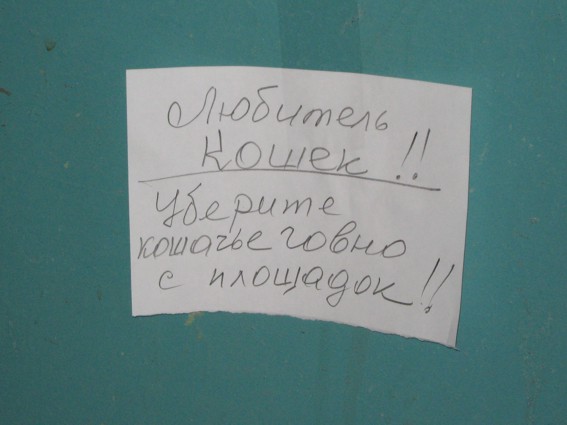 Любитель
Кошек!!
Уберите
кошачье говно
с площадок!!